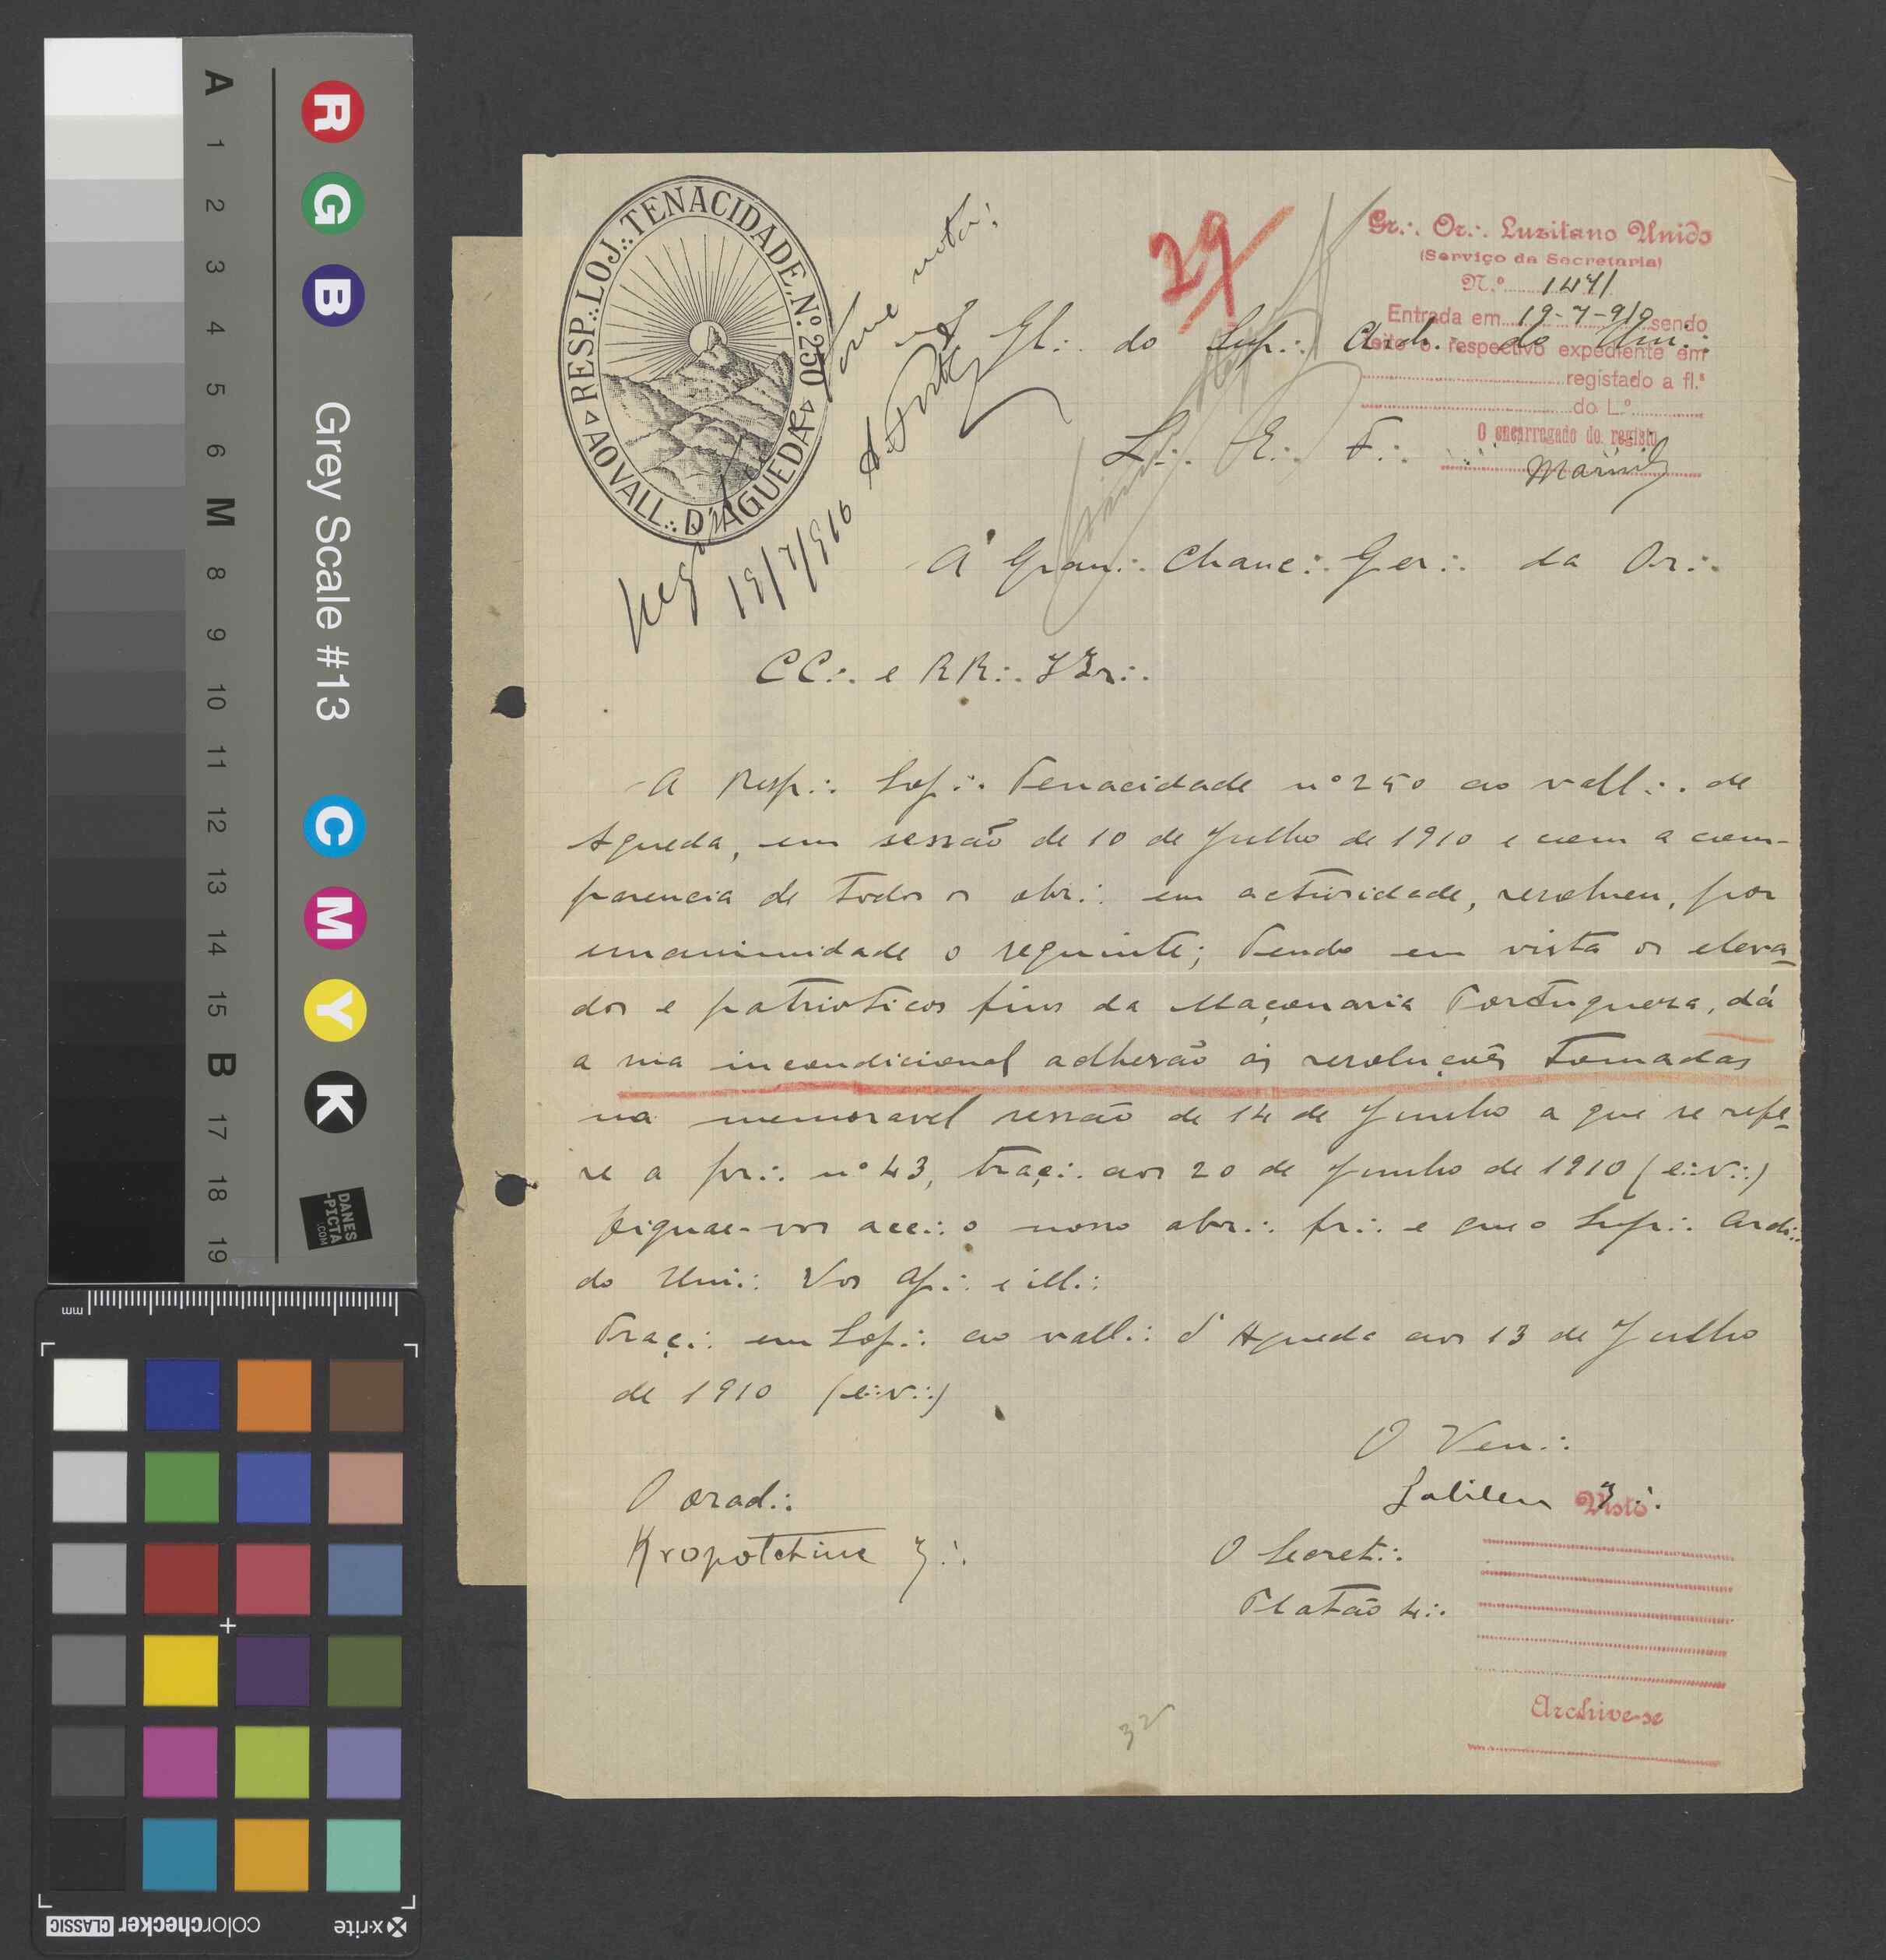 RESP∴ LOJ∴ TENACIDADE, N.º 250
AO VALL∴ D'AGUEDA
Tome nota:
19/7/910
29
Gr∴ Or∴ Luzitano Unido
(Serviço da Secretaria)
N.º 1441
Entrada em 19-7-910 sendo
feito o respectivo expediente em
registado a fl.ª
do L.º
O encarregado do registo
Á Gl∴ do Sup∴ Arch∴ do Un∴
L∴ E∴ F∴
Á Gran∴ Chanc∴ Ger∴ da Or∴
CC∴ e RR∴ IIr∴
A Resp∴ Loj∴ Tenacidade nº 250 ao vall∴ de
Agueda, em sessão de 10 de Julho de 1910 e com a com-
parencia de todos os obr∴ em actividade, resolveu, por
unanimidade o seguinte; Tendo em vista os eleva-
dos e patrioticos fins da Maçonaria Portugueza, dá
a sua incondicional adhesão ás resoluções tomadas
na memoravel sessão de 14 de Junho a que se refe-
re a pr∴ nº 43, traç∴ aos 20 de Junho de 1910 (e∴v∴)
Dignae-vos acc∴ o nosso abr∴ fr∴ e que o Sup∴ Arch∴
do Uni∴ Vos aj∴ e ill∴
Traç∴ em Loj∴ ao vall∴ d'Agueda aos 13 de Julho
de 1910 (e∴v∴)
O Ven∴
Galileu 3∴
O orad∴
Kropotkine 3∴
O Secret∴
Platão 4∴
Visto
Archive-se
32
A
1
2
3
4
5
6
M
8
9
10
11
12
13
14
15
B
17
18
19
R
G
B
Grey Scale #13
C
M
Y
K
DANES
-PICTA
.COM
mm
x-rite
colorchecker CLASSIC